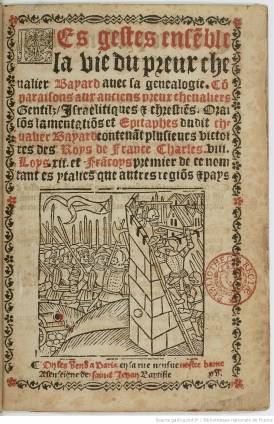 LEs gestes enseͤble
la vie du preux che
ualier Bayard auec sa genealogie. Cō
paraisons aux anciens preux cheualiers
Gentilz / Israelitiques ⁊ chrestiēs. Orai
sōs lamentatiōs et Epitaphes dudit che
ualier Bayard contenāt plusieurs victoi
res des Roys de France Charles. viii.
Loys. xii. et Frācoys premier de ce nom
tant es ytalies que autres regiōs ⁊ pays
¶ On les vend a Paris en la rue neufue nostre dame
A lenseigne de sainct Jehan Baptiste
Source gallica.bnf.fr / Bibliothèque nationale de France